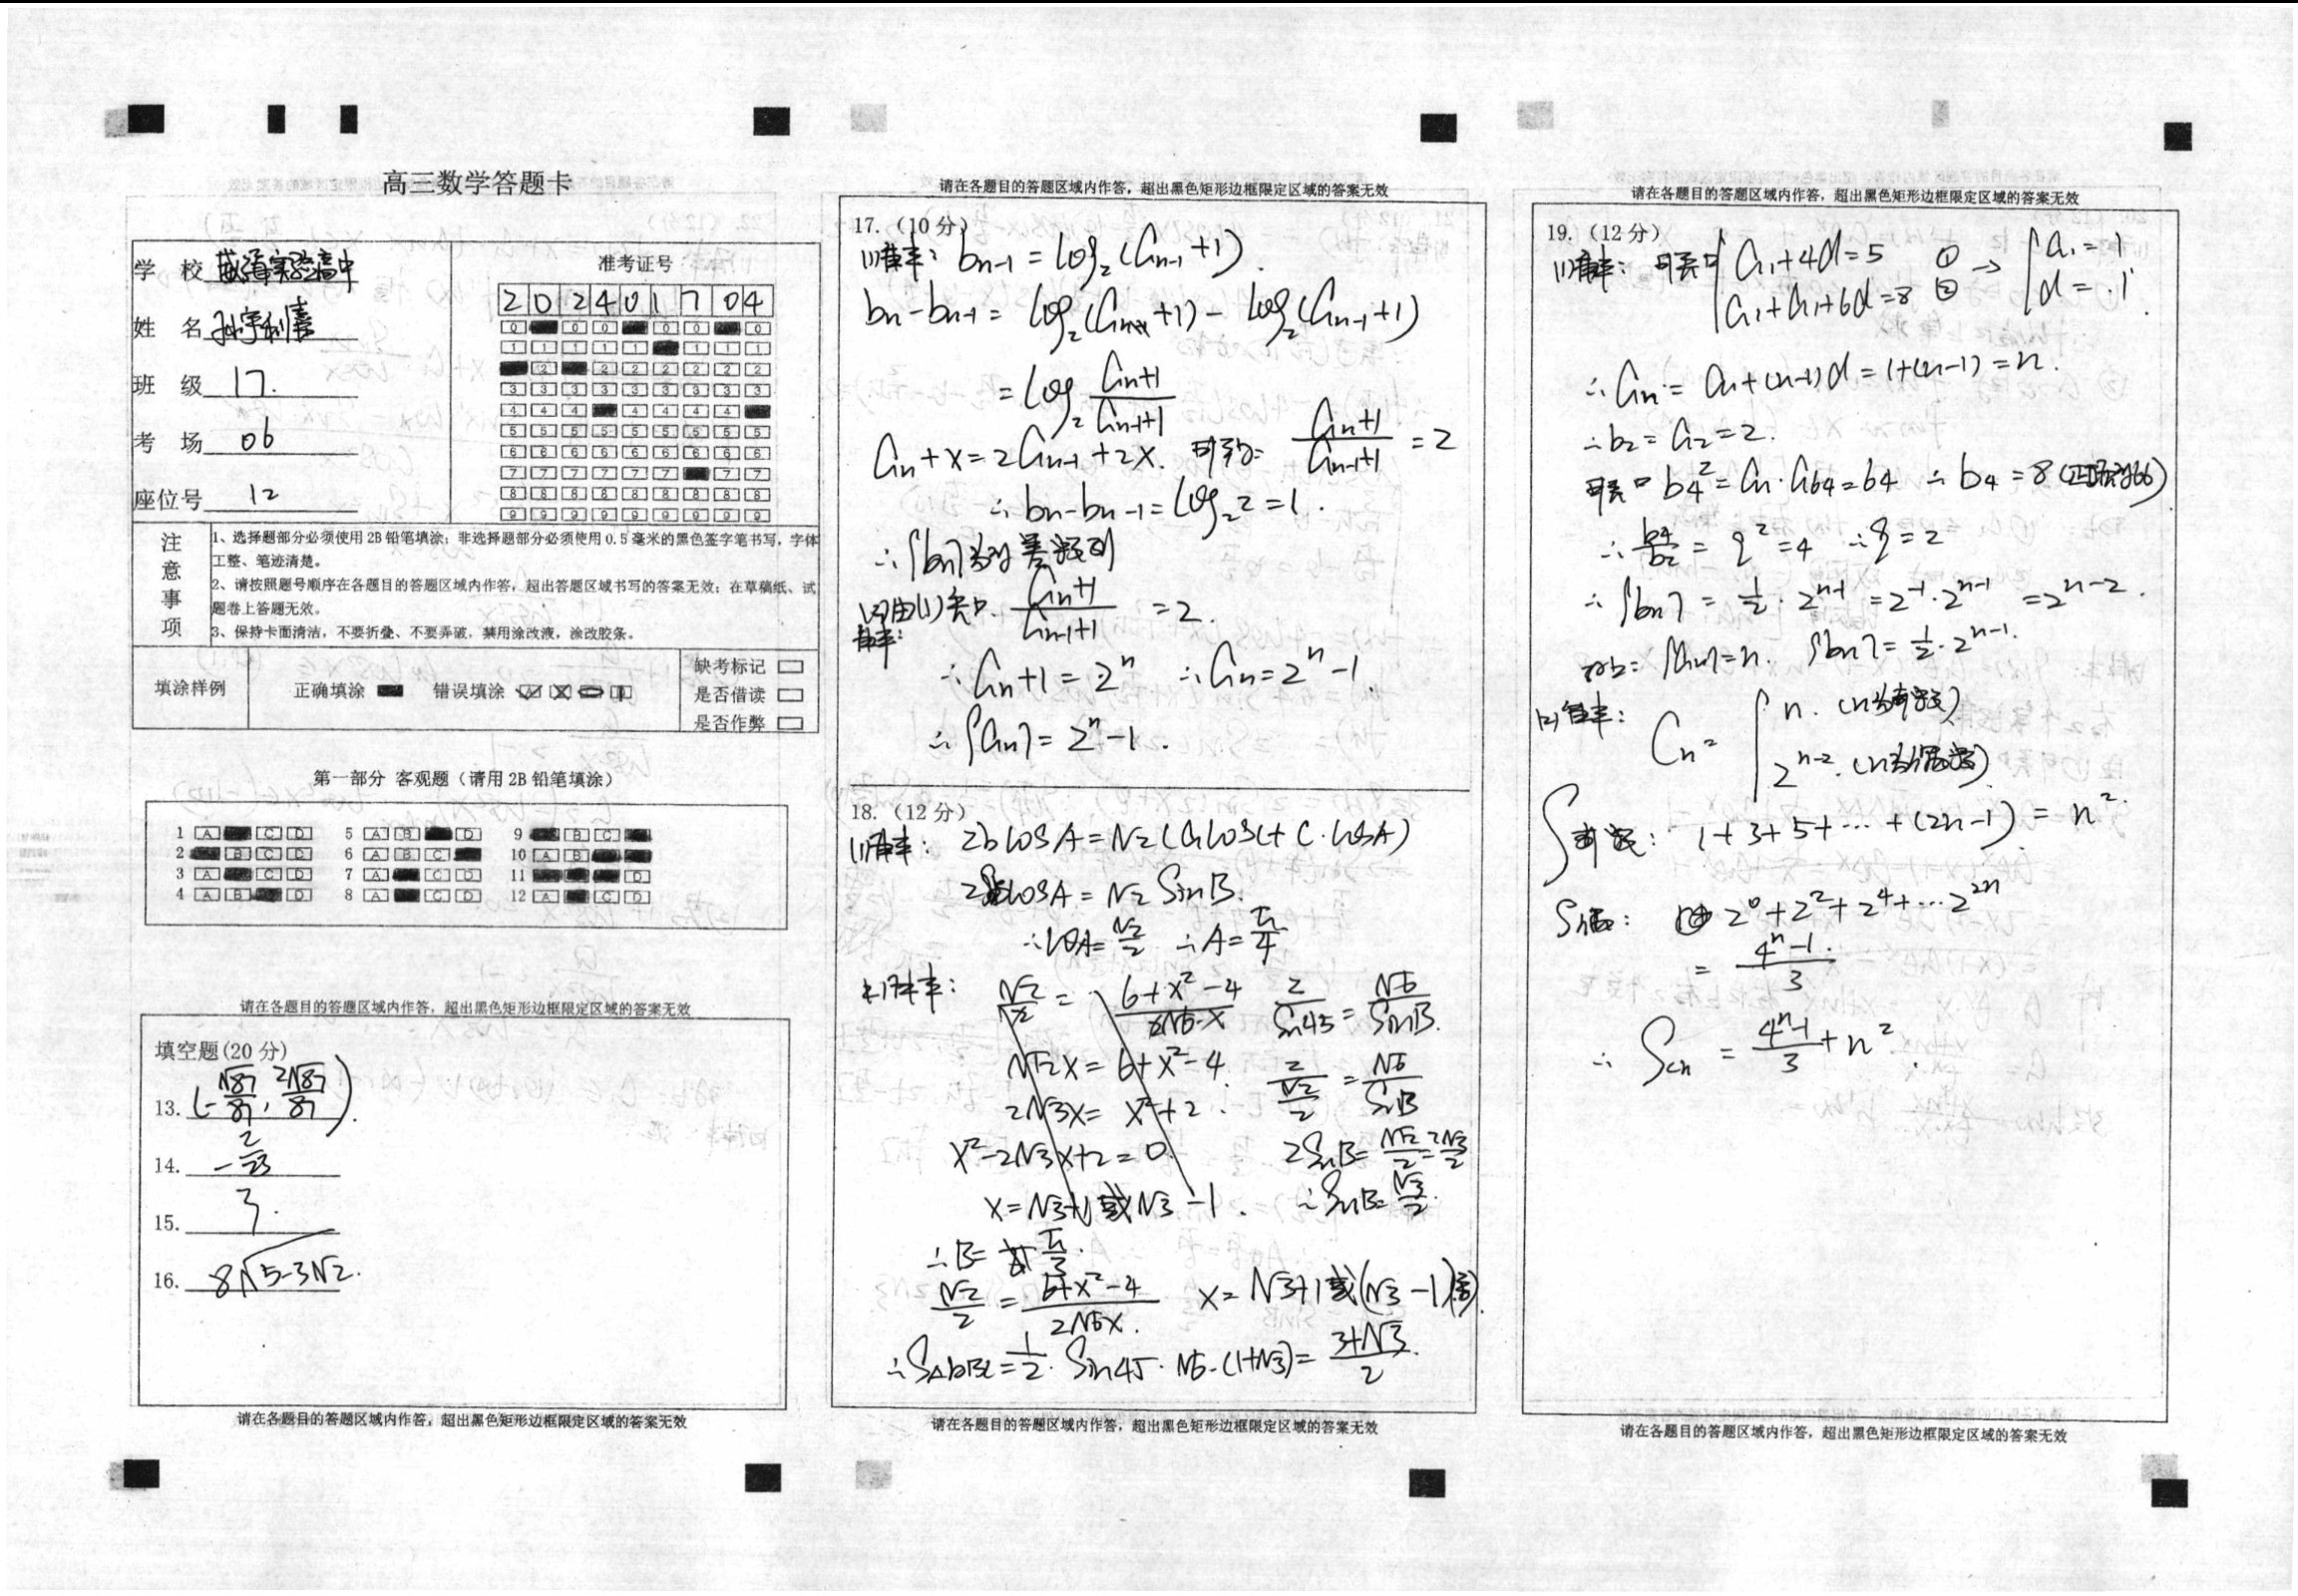 高三数学答题卡
学 校 实验高中
姓 名
班 级 17.
考 场 06
座位号 12
准考证号
2 0 2 4 0 1 7 0 4
注意事项
1、选择题部分必须使用2B铅笔填涂；非选择题部分必须使用0.5毫米的黑色签字笔书写，字体
工整、笔迹清楚。
2、请按照题号顺序在各题目的答题区域内作答，超出答题区域书写的答案无效；在草稿纸、试
题卷上答题无效。
3、保持卡面清洁，不要折叠、不要弄破，禁用涂改液，涂改胶条。
填涂样例 正确填涂 错误填涂
缺考标记
是否借读
是否作弊
第一部分 客观题（请用2B铅笔填涂）
1 A C D 5 A B D 9 B C
2 B C D 6 A B C 10 A B
3 A C D 7 A C D 11 D
4 A B D 8 A C D 12 A C D
请在各题目的答题区域内作答，超出黑色矩形边框限定区域的答案无效
填空题(20分)
13. (-√87/87, 2√87/87).
14. -2/23
15. 3.
16. 8√(5-3√2).
请在各题目的答题区域内作答，超出黑色矩形边框限定区域的答案无效
请在各题目的答题区域内作答，超出黑色矩形边框限定区域的答案无效
17.（10分）
(1)解: bn-1 = log₂(an-1+1).
bn-bn-1 = log₂(an+1) - log₂(an-1+1)
= log₂ (an+1)/(an-1+1)
an+x=2an-1+2x. 可得: (an+1)/(an-1+1) = 2
∴bn-bn-1=log₂2=1.
∴{bn}为等差数列
(2)由(1)知. (an+1)/(an-1+1) = 2.
解:
∴an+1=2ⁿ ∴an=2ⁿ-1.
∴{an}=2ⁿ-1.
18.（12分）
(1)解: 2bcosA=√2(acosC+c·cosA)
cosA=√2sinB.
∴cosA=√2/2 ∴A=π/4
(2)解: √2/2 = (6+x²-4)/(2√6·x) 2/sin45=√6/sinB.
√12x=6+x²-4. 2/(√2/2)=√6/sinB
2√3x=x²+2.
x²-2√3x+2=0. 2sinB=√12/2=2√3/2
x=√3+1或√3-1. ∴sinB=√3/2.
∴B=π/3.
√2/2=(6+x²-4)/(2√6x). x=√3+1或(√3-1)(舍).
∴S△ABC=1/2·sin45·√6·(1+√3)=(3+√3)/2.
请在各题目的答题区域内作答，超出黑色矩形边框限定区域的答案无效
请在各题目的答题区域内作答，超出黑色矩形边框限定区域的答案无效
19.（12分）
(1)解: 可知 {a₁+4d=5 ① → {a₁=1
a₁+a₁+6d=8 ② d=1.
∴an=a₁+(n-1)d=1+(n-1)=n.
∴b₂=a₂=2.
可知 b₄²=a₁·a₆₄=64 ∴b₄=8
∴b₄/b₂=q²=4 ∴q=2
∴{bn}=1/2·2ⁿ⁻¹=2⁻¹·2ⁿ⁻¹=2ⁿ⁻².
{an}=n. {bn}=1/2·2ⁿ⁻¹.
(2)解: Cn={n.(n为奇数)
2ⁿ⁻².(n为偶数)
S奇数: 1+3+5+…+(2n-1)=n².
S偶: 2⁰+2²+2⁴+…2²ⁿ
=(4ⁿ-1)/3.
∴Scn=(4ⁿ-1)/3+n².
请在各题目的答题区域内作答，超出黑色矩形边框限定区域的答案无效